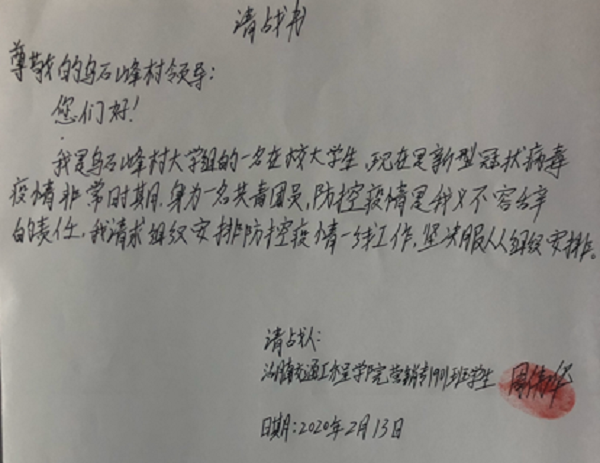 请战书
尊敬的乌石峰村领导：
您们好！
我是乌石峰村大学组的一名在校大学生，现在是新型冠状病毒
疫情非常时期，身为一名共青团员，防控疫情是我义不容辞
的责任，我请求组织安排防控疫情一线工作，坚决服从组织安排。
请战人：
湖南交通工程学院营销专1911班学生 周伟
日期：2020年2月13日